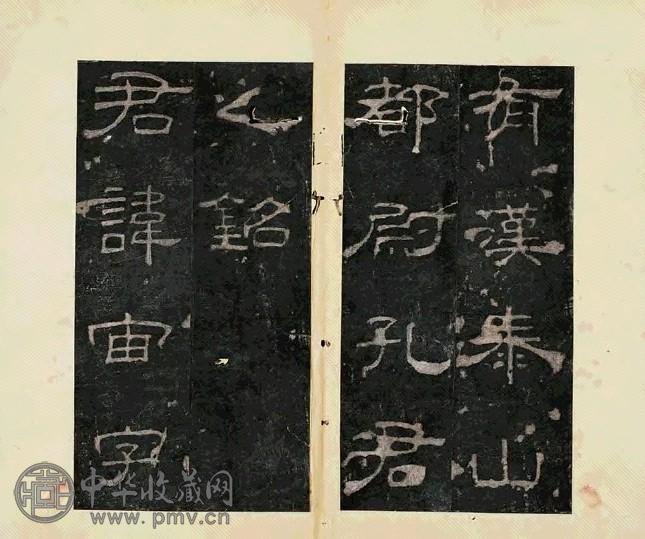 有漢泰山
都尉孔君
之銘
君諱宙字
中华收藏网
www.pmv.cn